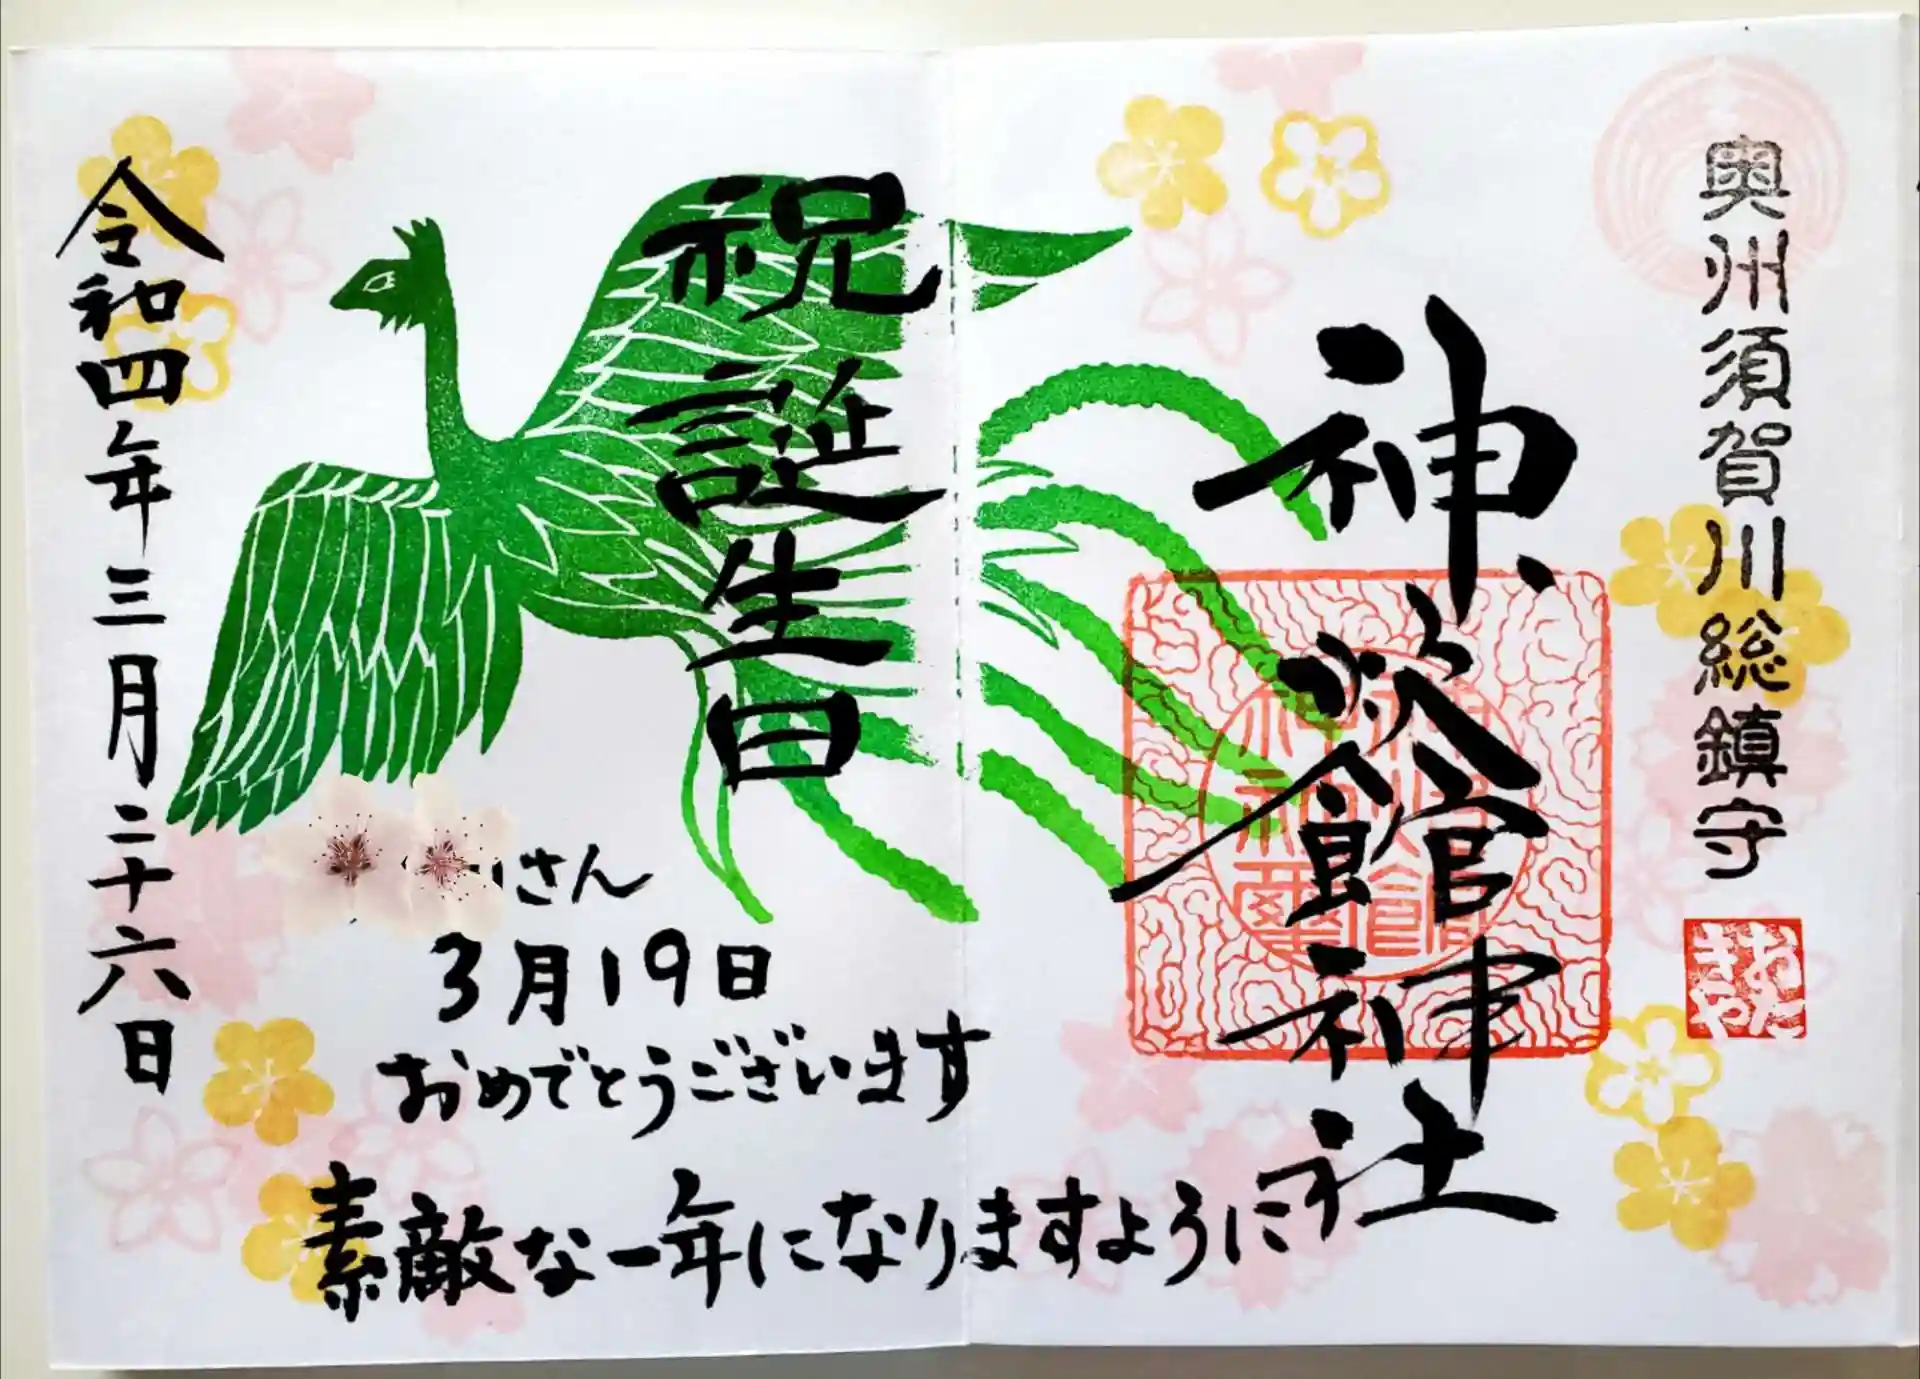 奥州須賀川総鎮守
おたきや
神炊館神社
祝誕生日
さん
3月19日
おめでとうございます
素敵な一年になりますように
令和四年三月二十六日